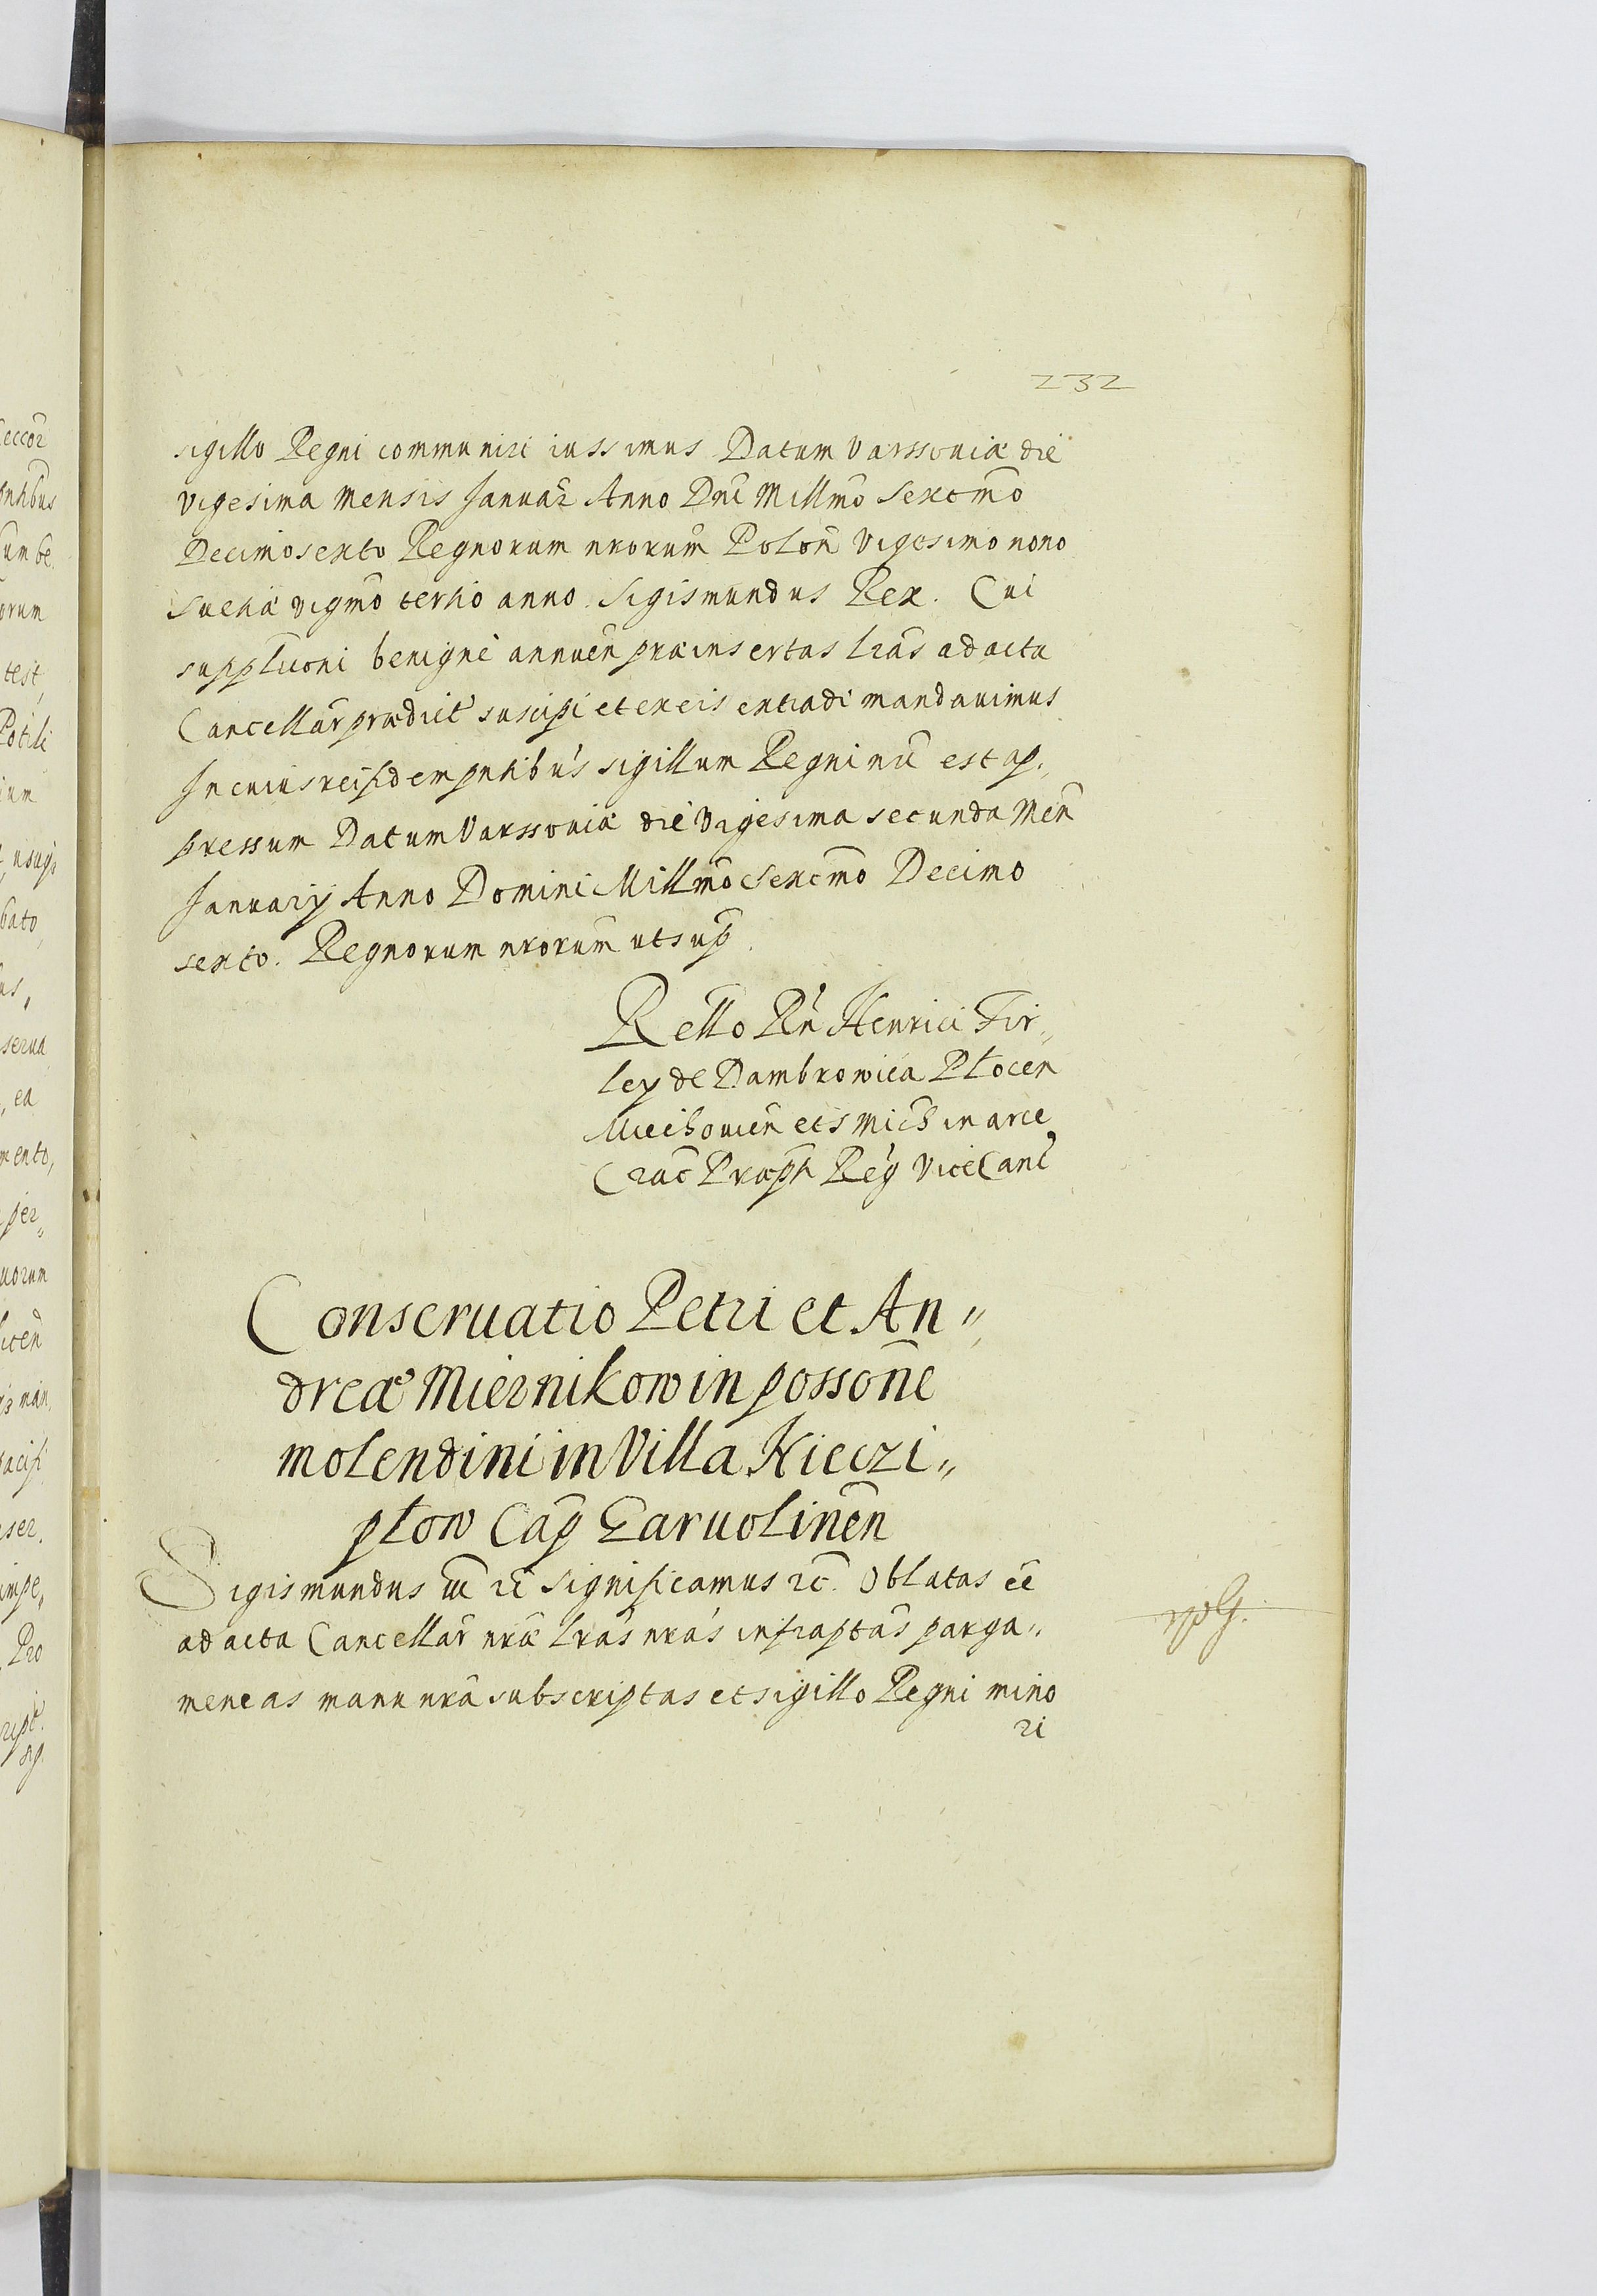 232
sigillo Regni communiri iussimus Datum Varssouiæ die
vigesima mensis Januar Anno Dni Millmo Sexctmo
Decimosexto Regnorum nrorum Polon Vigesimo nono
Sueciæ vigmo tertio anno. Sigismundus Rex. Cui
suppliconi benigne annuen præinsertas lras ad acta
Cancellar prædict suscipi et ex eis extradi mandauimus
In cuius rei fidem pntibus sigillum Regni nri est ap„
pressum Datum Varssouiæ die Vigesima secunda Men
Januarij Anno Domini Millmo Sexctmo Decimo
sexto. Regnorum nrorum ut sup.
Rello Rn Henrici Fir„
ley de Dambrowica Plocen
Miechouien et S Mich in arce
Crac Præpti Reg ViceCanc
Conseruatio Petri et An„
dreæ Miernikow in possone
molendini in Villa Kieczi„
plow Cap Garuolinen
Sigismundus III rc Significamus rc. Oblatas ee
ad acta Cancellar nræ lras nras infraptas parga„
meneas manu nra subscriptas et sigillo Regni mino
ri